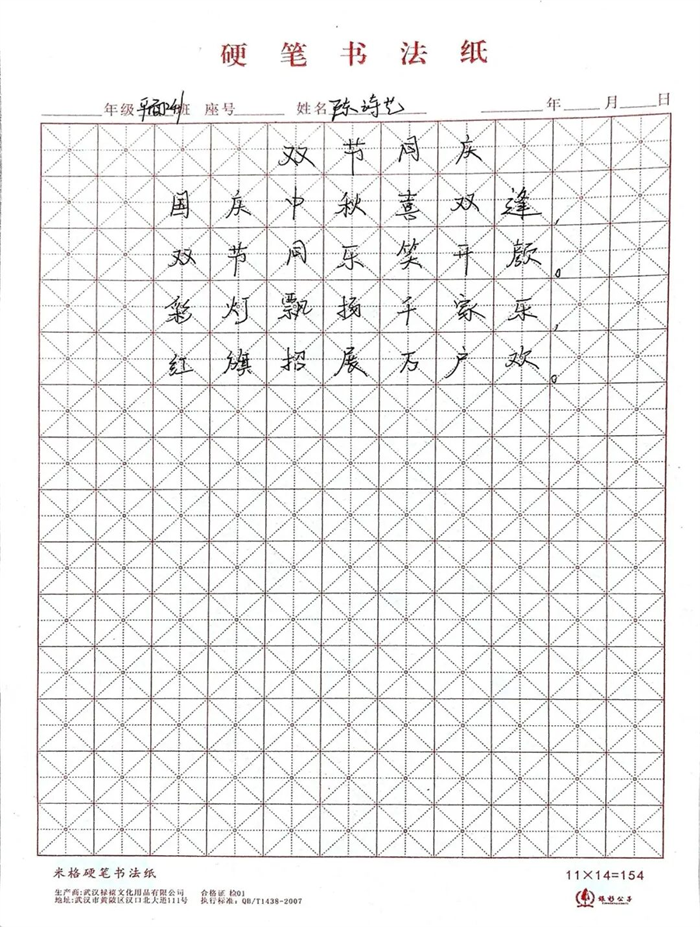 硬笔书法纸
年级 平面2班 座号 姓名 陈诗艺 年 月 日
双节同庆
国庆中秋喜双逢，
双节同乐笑开颜。
彩灯飘扬千家乐，
红旗招展万户欢。
米格硬笔书法纸 11×14=154
生产商:武汉禄禧文化用品有限公司 合格证 检01
地址:武汉市黄陂区汉口北大道111号 执行标准: QB/T1438-2007